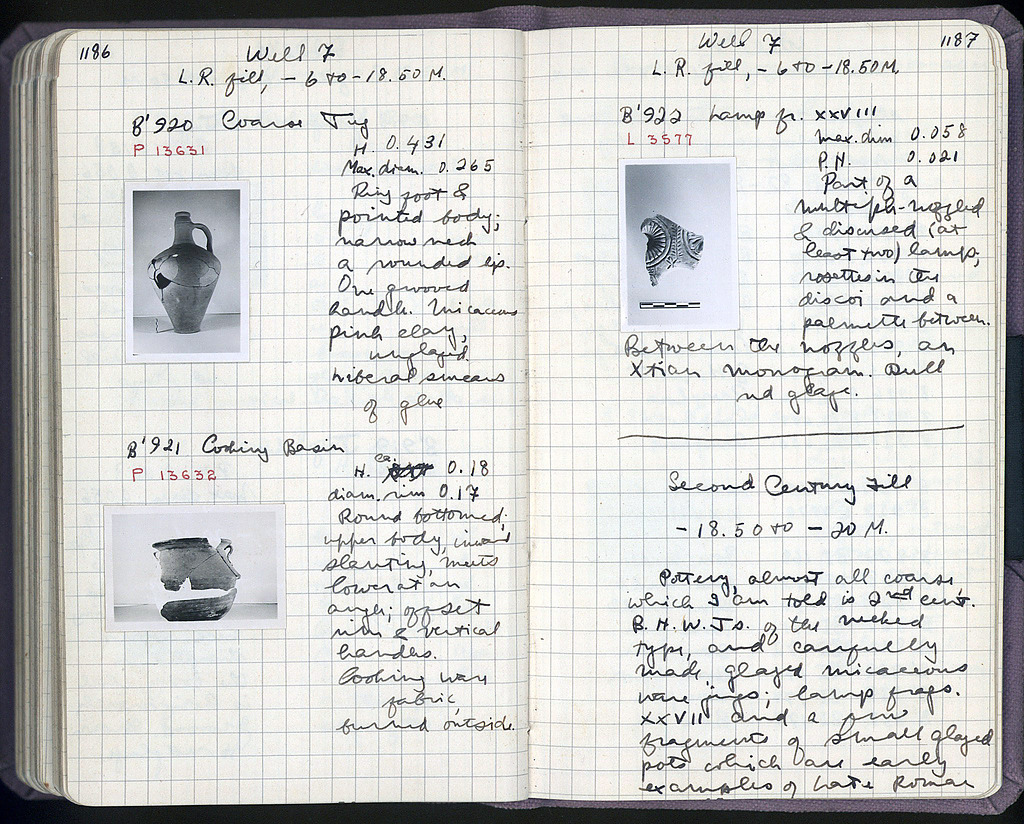 1186
Well 7
L.R. fill, - 6 to - 18.50 M.
B'920 Coarse Jug
P 13631
H. 0.431
Max. diam. 0.265
Ring foot &
pointed body;
narrow neck
a rounded lip.
One grooved
handle. Micaceous
pink clay,
unglazed.
Liberal smears
of glue
B'921 Cooking Basin
P 13632
H. ca. 0.18
diam. rim 0.17
Round bottomed;
upper body, inward
slanting, meets
lower at an
angle; offset
rim & vertical
handles.
Cooking ware
fabric,
burned outside.
1187
Well 7
L.R. fill, - 6 to - 18.50 M.
B'922 Lamp fr. XXVIII
L 3577
max. dim 0.058
P.H. 0.021
Part of a
multiple-nozzled
& discused (at
least two) lamp;
rosettes in the
discoi and a
palmette between.
Between the nozzles, an
Xtian monogram. Dull
red glaze.
Second Century Fill
- 18.50 to - 20 M.
Pottery, almost all coarse,
which I am told is 2nd cent.
B.H.W.Js. of the necked
type, and carefully
made, glazed micaceous
ware jugs; lamp frags.
XXVII and a few
fragments of small glazed
pots which are early
examples of Late Roman